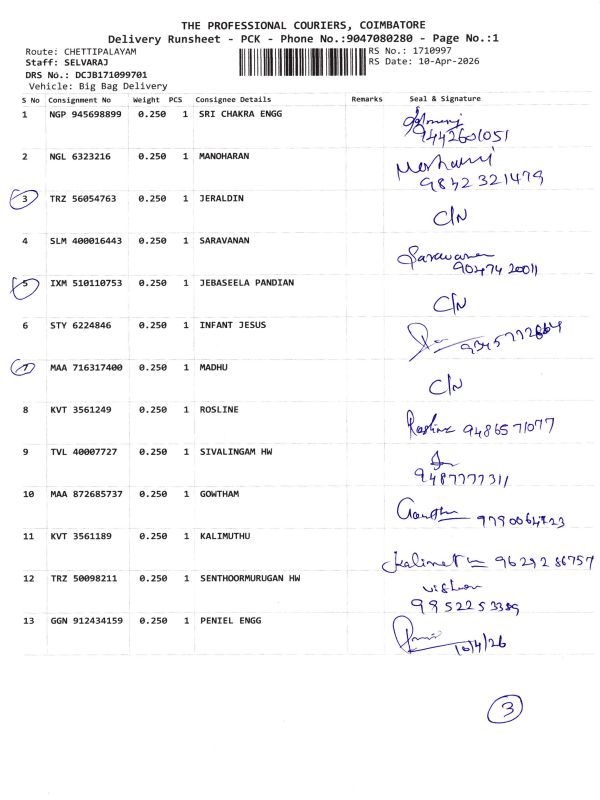 THE PROFESSIONAL COURIERS, COIMBATORE
Delivery Runsheet - PCK - Phone No.:9047080280 - Page No.:1
Route: CHETTIPALAYAM RS No.: 1710997
Staff: SELVARAJ RS Date: 10-Apr-2026
DRS No.: DCJB171099701
Vehicle: Big Bag Delivery
S No Consignment No Weight PCS Consignee Details Remarks Seal & Signature
1 NGP 945698899 0.250 1 SRI CHAKRA ENGG
9442601051
2 NGL 6323216 0.250 1 MANOHARAN
9842321479
3 TRZ 56054763 0.250 1 JERALDIN C/N
4 SLM 400016443 0.250 1 SARAVANAN Saravanan
9047420011
5 IXM 510110753 0.250 1 JEBASEELA PANDIAN C/N
6 STY 6224846 0.250 1 INFANT JESUS
7 MAA 716317400 0.250 1 MADHU C/N
8 KVT 3561249 0.250 1 ROSLINE Rosline 9486571077
9 TVL 40007727 0.250 1 SIVALINGAM HW
9487777311
10 MAA 872685737 0.250 1 GOWTHAM
11 KVT 3561189 0.250 1 KALIMUTHU 9629286757
12 TRZ 50098211 0.250 1 SENTHOORMURUGAN HW
13 GGN 912434159 0.250 1 PENIEL ENGG
10/4/26
3